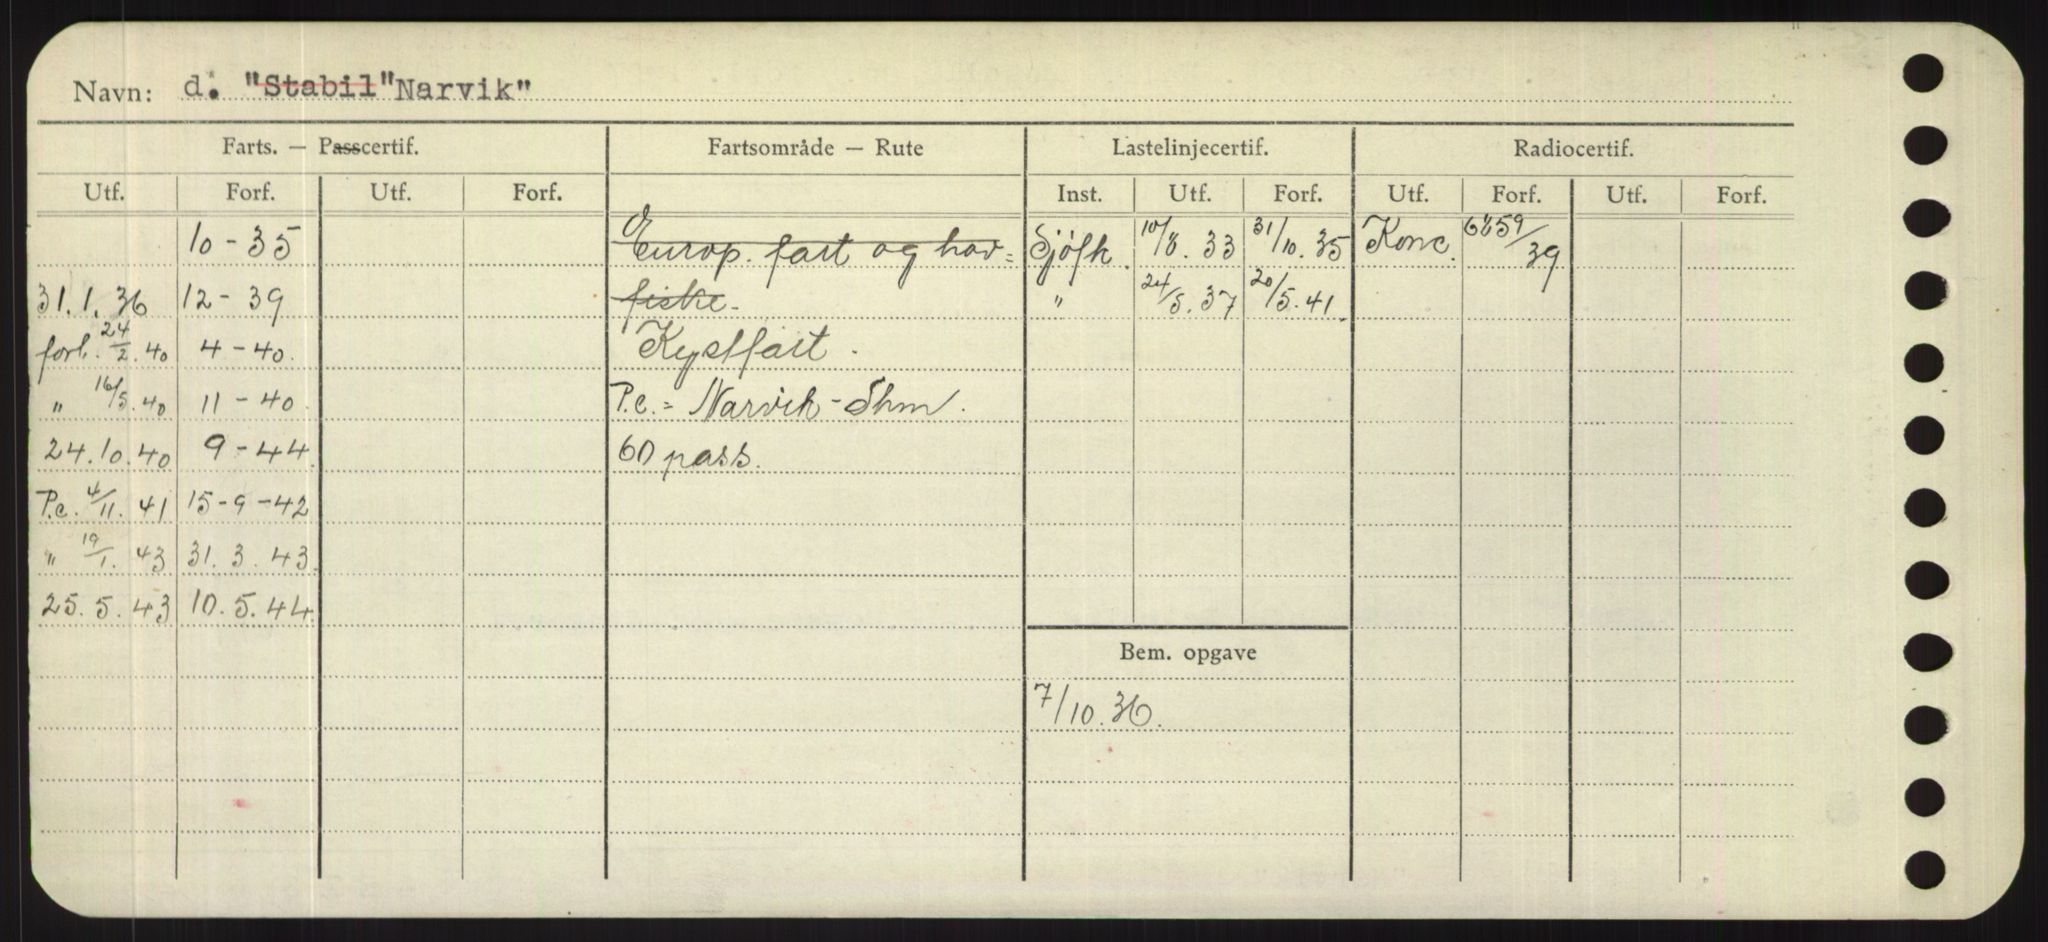 Navn: d. "Stabil" Narvik"
Farts. — Passcertif. Fartsområde — Rute Lastelinjecertif. Radiocertif.
Utf. Forf. Utf. Forf. Inst. Utf. Forf. Utf. Forf. Utf. Forf.
10 - 35 Europ. fart og hav= Sjöfk. 10/8. 33 31/10. 35 Konc. /39
31. 1. 36 12 - 39 fiske. " 24/5. 37 20/5. 41.
forl. 24/2. 40 4 - 40. Kystfart.
" 16/5. 40 11 - 40 P.c. = Narvik - Shm.
24. 10. 40 9 - 44. 60 pass.
P.c. 4/11. 41 15 - 9 - 42
" 19/1. 43 31. 3. 43.
25. 5. 43 10. 5. 44.
Bem. opgave
7/10. 36.